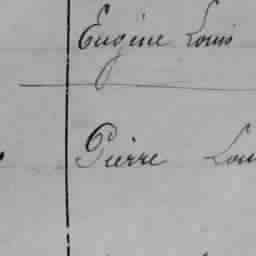 Eugène Louis
Pierre Lou